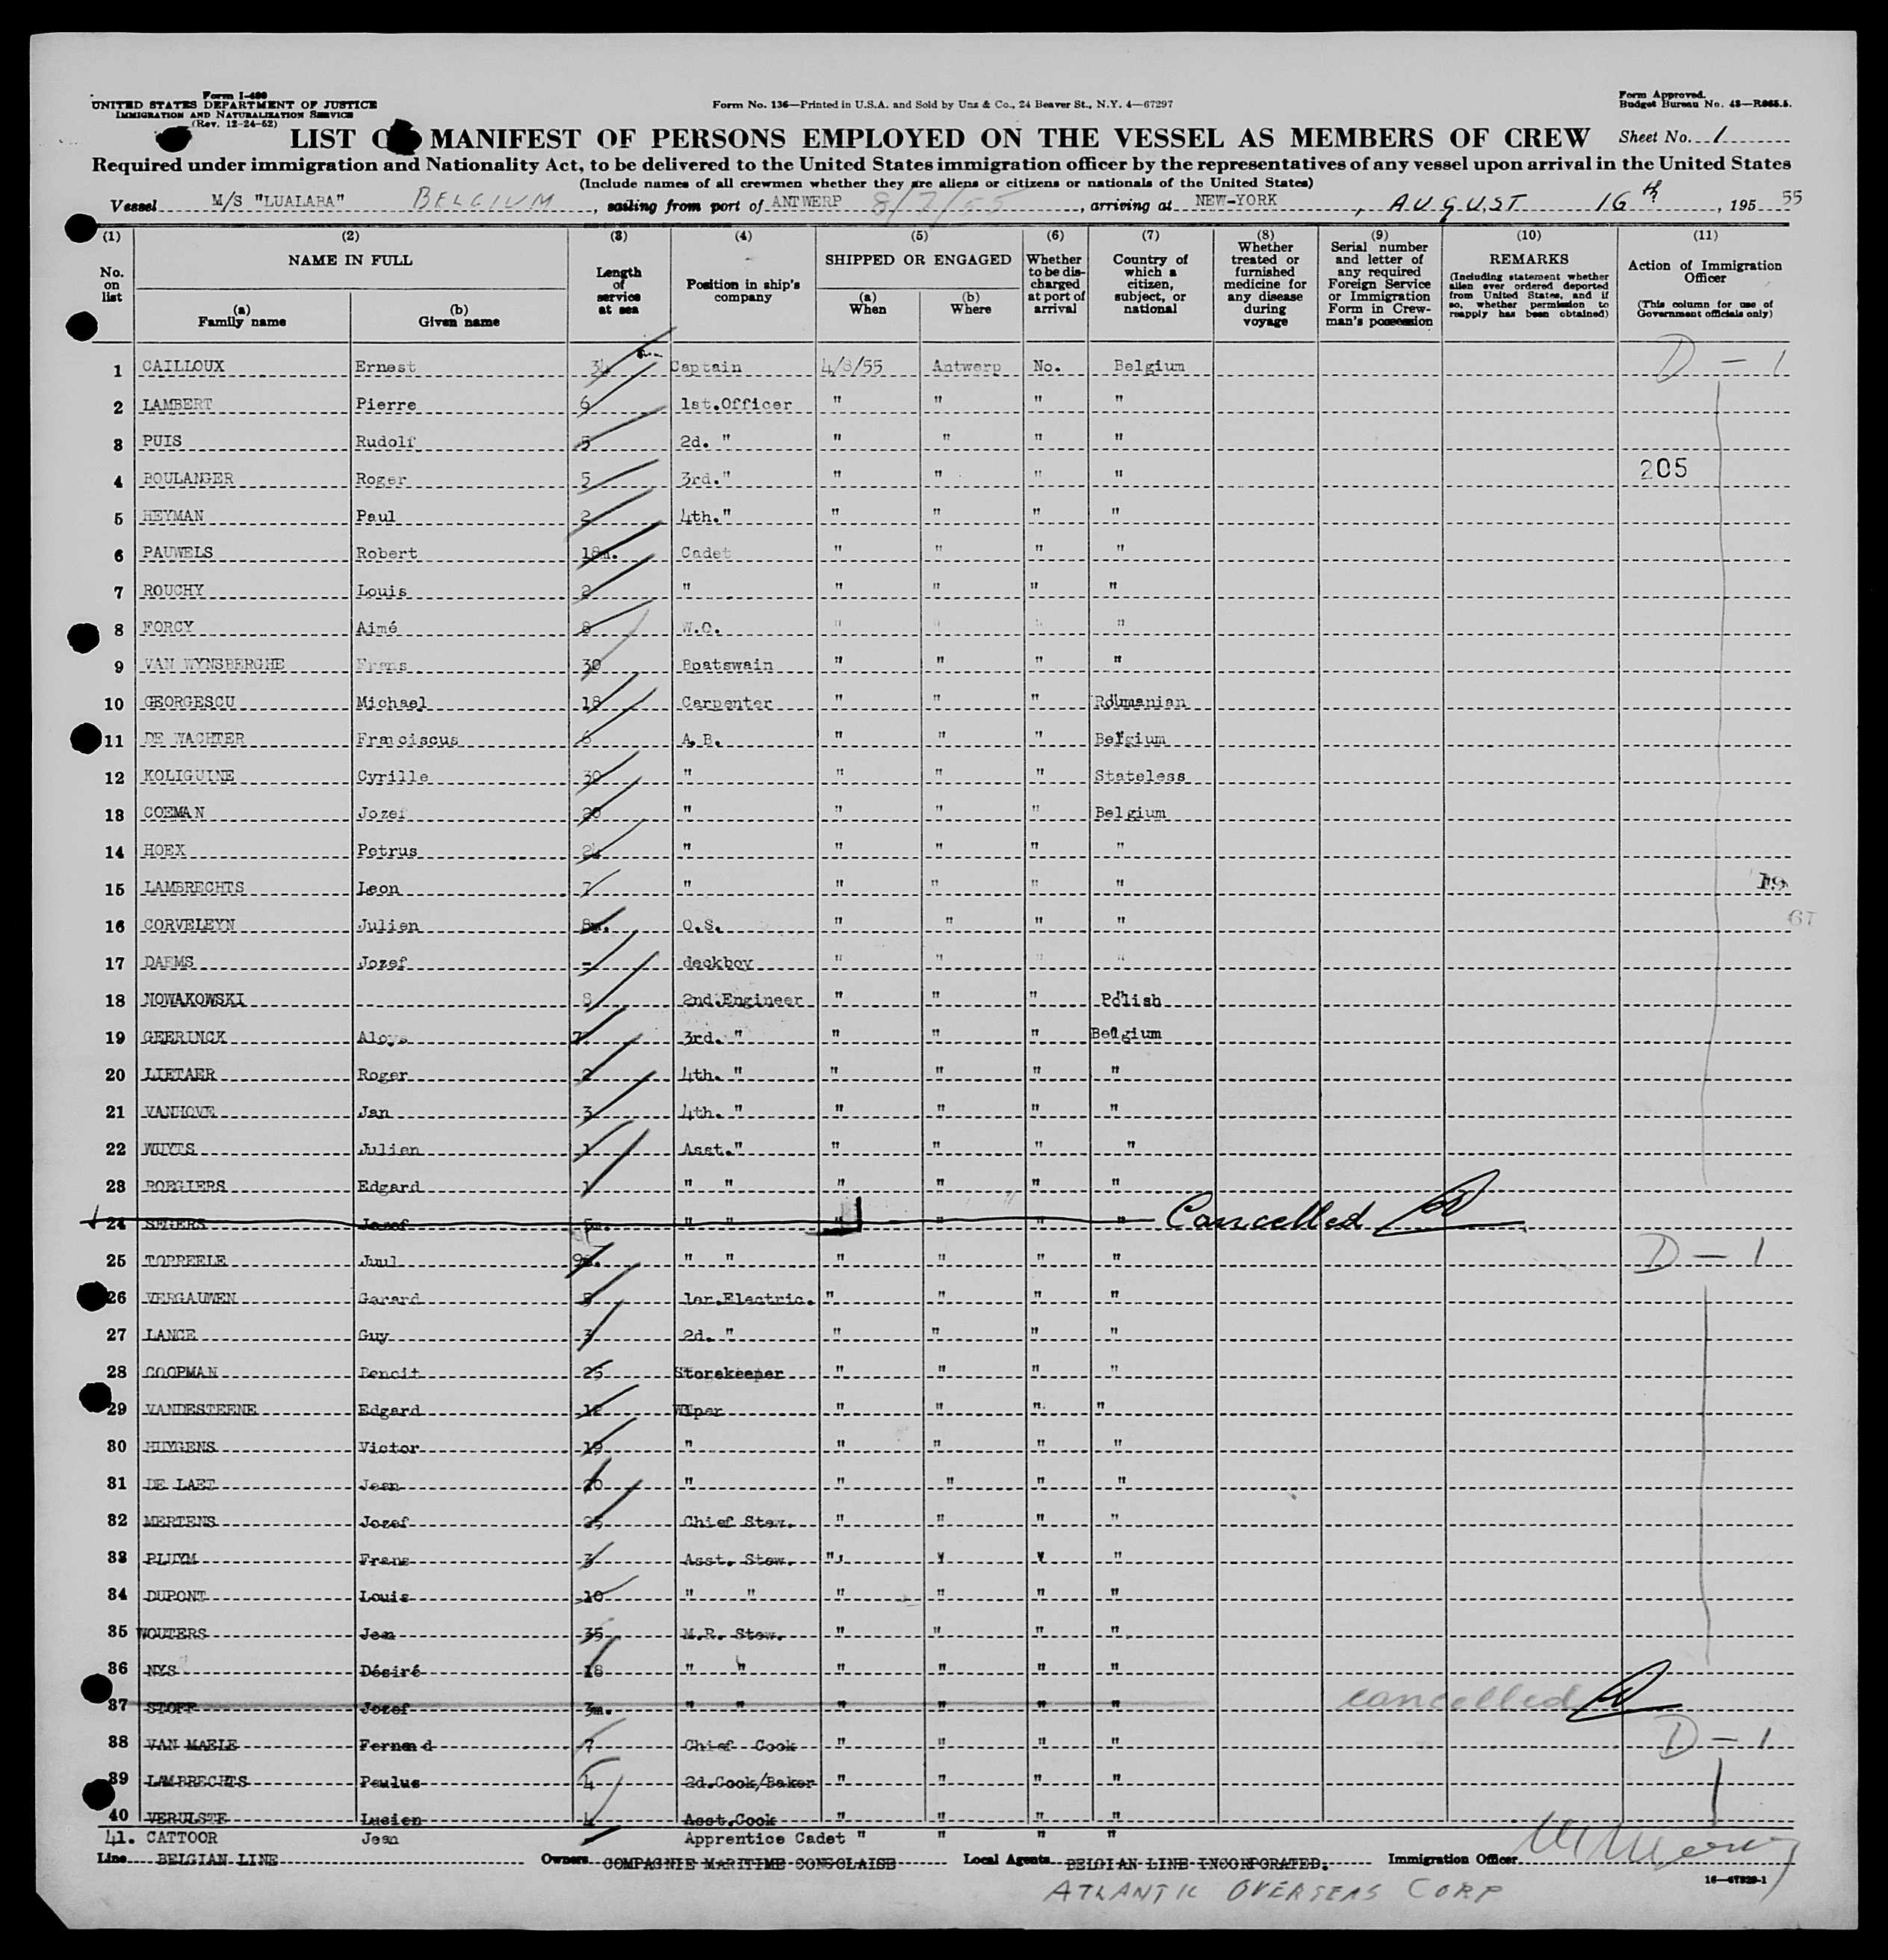 Form I-480
UNITED STATES DEPARTMENT OF JUSTICE
IMMIGRATION AND NATURALIZATION SERVICE
(Rev. 12-24-52)
Form No. 136—Printed in U.S.A. and Sold by Unz & Co., 24 Beaver St., N.Y. 4—67297
Form Approved.
Budget Bureau No. 43—R065.5.
LIST OR MANIFEST OF PERSONS EMPLOYED ON THE VESSEL AS MEMBERS OF CREW
Sheet No. 1
Required under immigration and Nationality Act, to be delivered to the United States immigration officer by the representatives of any vessel upon arrival in the United States
(Include names of all crewmen whether they are aliens or citizens or nationals of the United States)
Vessel M/S "LUALABA" BELGIUM, sailing from port of ANTWERP 8/7/55, arriving at NEW-YORK, AUGUST 16th, 195 55
(1) (2) (3) (4) (5) (6) (7) (8) (9) (10) (11)
No. on list
NAME IN FULL
(a) Family name
(b) Given name
Length of service at sea
Position in ship's company
SHIPPED OR ENGAGED
(a) When
(b) Where
Whether to be discharged at port of arrival
Country of which a citizen, subject, or national
Whether treated or furnished medicine for any disease during voyage
Serial number and letter of any required Foreign Service or Immigration Form in Crewman's possession
REMARKS
(Including statement whether alien ever ordered deported from United States, and if so, whether permission to reapply has been obtained)
Action of Immigration Officer
(This column for use of Government officials only)
1 CAILLOUX Ernest 34 Captain 4/8/55 Antwerp No. Belgium D — 1
2 LAMBERT Pierre 6 1st.Officer " " " "
3 PUIS Rudolf 5 2d. " " " " "
4 BOULANGER Roger 5 3rd." " " " " 205
5 HEYMAN Paul 2 4th." " " " "
6 PAUWELS Robert 18m. Cadet " " " "
7 ROUCHY Louis 2 " " " " "
8 FORCY Aimé 8 W.O. " " " "
9 VAN WYNSBERGHE Frans 30 Boatswain " " " "
10 GEORGESCU Michael 18 Carpenter " " " Roumanian
11 DE WACHTER Franciscus 6 A.B. " " " Belgium
12 KOLIGUINE Cyrille 30 " " " " Stateless
13 COEMAN Jozef 20 " " " " Belgium
14 HOEX Petrus 24 " " " " "
15 LAMBRECHTS Leon 7 " " " " "
16 CORVELEYN Julien 8m. O.S. " " " "
17 DAEMS Jozef - deckboy " " " "
18 NOWAKOWSKI 8 2nd.Engineer " " " Polish
19 GEERINCK Aloys 7 3rd. " " " " Belgium
20 LIETAER Roger 2 4th. " " " " "
21 VANHOVE Jan 3 4th. " " " " "
22 WUYTS Julien 1 Asst." " " " "
23 ROEGIERS Edgard 1 " " " " " "
24 SEGERS Jozef 5m. " " " " " " Cancelled
25 TOPPEELE Juul 9m. " " " " " " D — 1
26 VERGAUWEN Gerard 5 1er.Electric. " " " "
27 LANCE Guy 3 2d. " " " " "
28 COOPMAN Benoit 25 Storekeeper " " " "
29 VANDESTEENE Edgard 12 Wiper " " " "
30 HUYGENS Victor 19 " " " " "
31 DE LAET Jean 20 " " " " "
32 MERTENS Jozef 25 Chief Stew. " " " "
33 PLUYM Frans 3 Asst. Stew. " " " "
34 DUPONT Louis 10 " " " " " "
35 WOUTERS Jean 35 M.R. Stew. " " " "
36 NYS Désiré 18 " " " " " "
37 STOFF Jozef 3m. " " " " " " cancelled
38 VAN MAELE Fernand 7 Chief Cook " " " " D — 1
39 LAMBRECHTS Paulus 4 2d.Cook/Baker " " " "
40 VERULSTE Lucien 4 Asst.Cook " " " "
41. CATTOOR Jean Apprentice Cadet " " " "
Line BELGIAN LINE Owners COMPAGNIE MARITIME CONGOLAISE Local Agents BELGIAN LINE INCORPORATED. Immigration Officer
ATLANTIC OVERSEAS CORP